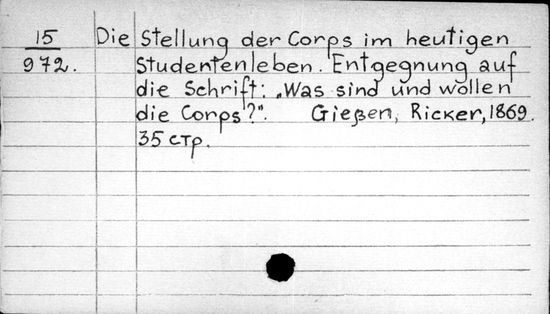 15
972.
Die Stellung der Corps im heutigen
Studentenleben. Entgegnung auf
die Schrift: „Was sind und wollen
die Corps?". Gießen, Ricker, 1869.
35 стр.